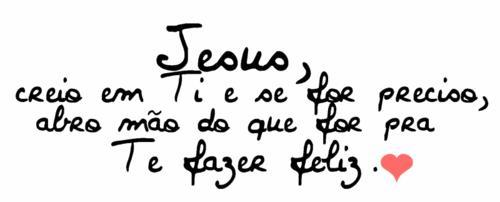 Jesus,
creio em Ti e se for preciso,
abro mão do que for pra
Te fazer feliz.